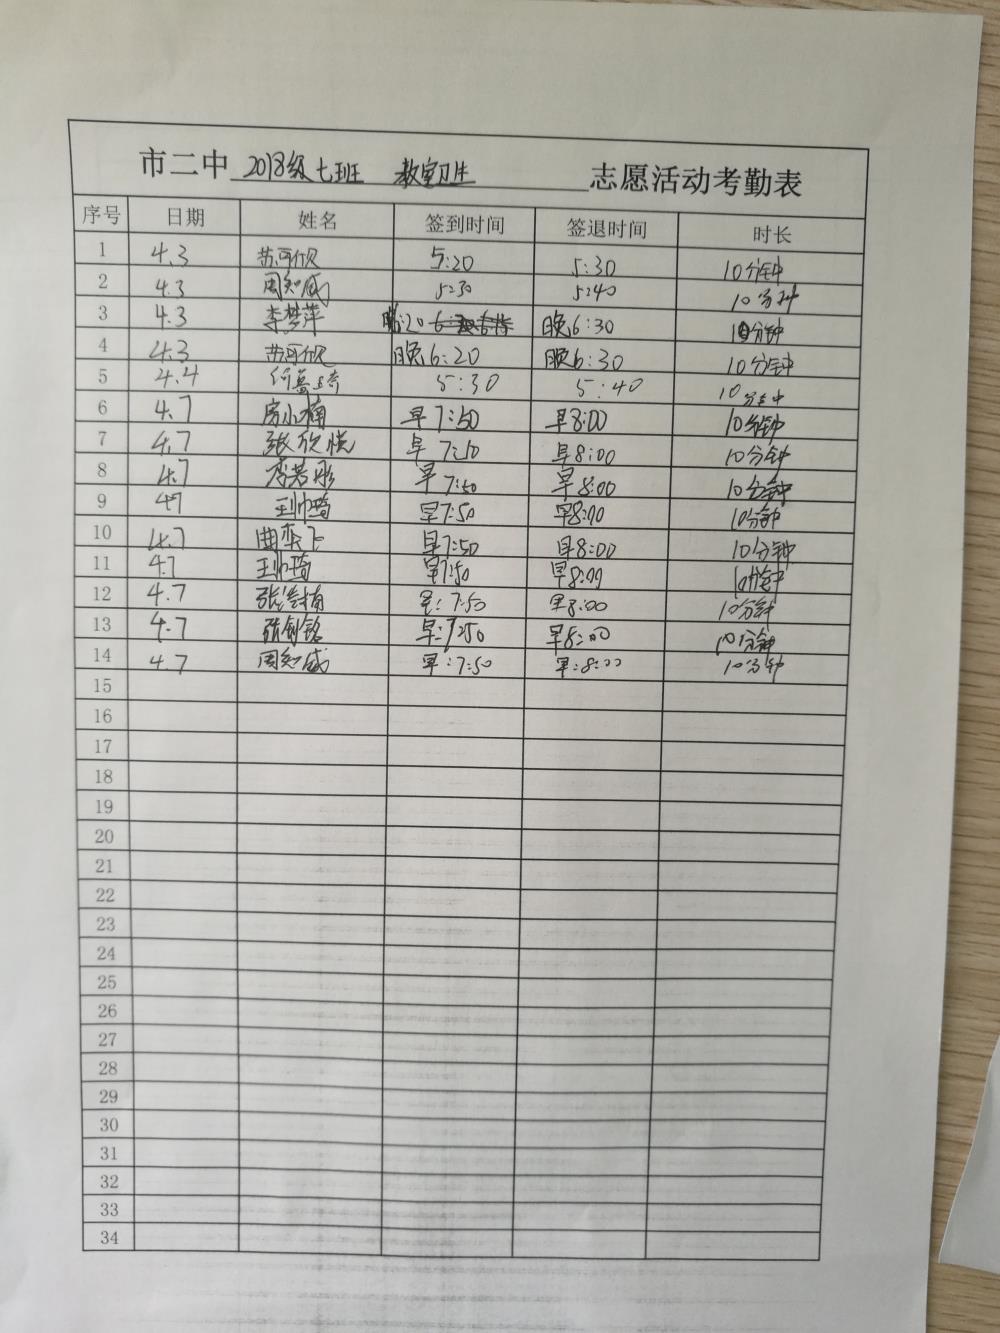 市二中 2018级七班 教室卫生 志愿活动考勤表
序号 日期 姓名 签到时间 签退时间 时长
1 4.3 苏可欣 5:20 5:30 10分钟
2 4.3 周知威 5:30 5:40 10分钟
3 4.3 李梦萍 晚6:20 晚6:30 10分钟
4 4.3 苏可欣 晚6:20 晚6:30 10分钟
5 4.4 5:30 5:40 10分钟
6 4.7 房小楠 早7:50 早8:00 10分钟
7 4.7 张欣悦 早7:50 早8:00 10分钟
8 4.7 李若彤 早7:50 早8:00 10分钟
9 4.7 王帅琦 早7:50 早8:00 10分钟
10 4.7 曲奕飞 早7:50 早8:00 10分钟
11 4.7 王帅琦 早7:50 早8:00 10分钟
12 4.7 早:7:50 早8:00 10分钟
13 4.7 张剑铭 早:7:50 早8:00 10分钟
14 4.7 周知威 早:7:50 早:8:00 10分钟
15
16
17
18
19
20
21
22
23
24
25
26
27
28
29
30
31
32
33
34